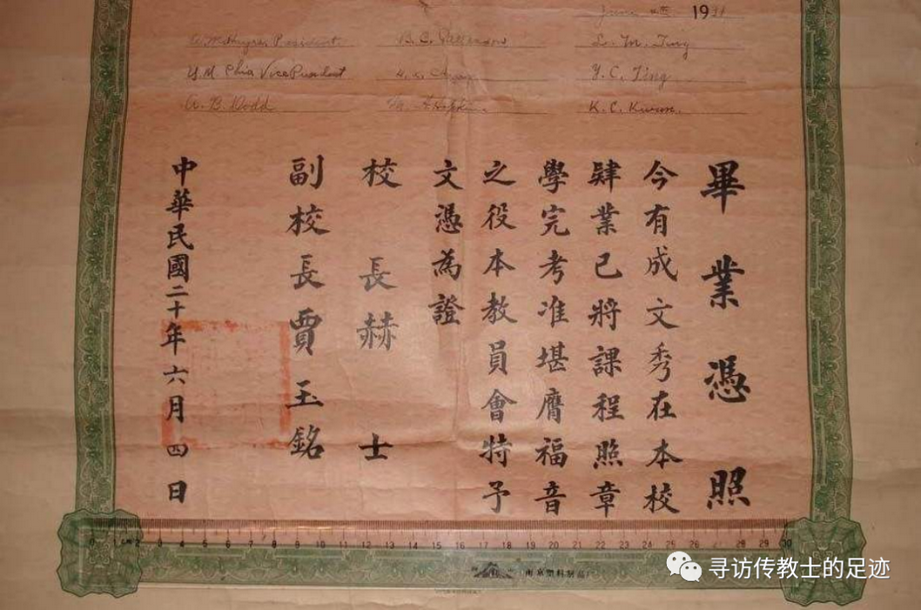 June 4th 1931
President
B. C. Patterson
L. M. Ting
Y. M. Chia Vice President
Y. C. Ting
A. B. Dodd
K. C. Kwon
畢業憑照
今有成文秀在本校
肄業已將課程照章
學完考准堪膺福音
之役本教員會特予
文憑為證
校長赫士
副校長賈玉銘
中華民國二十年六月四日
0 1 2 3 4 5 6 7 8 9 10 11 12 13 14 15 16 17 18 19 20 21 22 23 24 25 26 27 28 29 30
寻访传教士的足迹